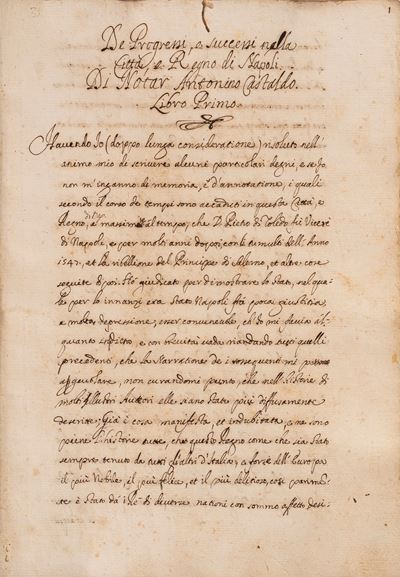 1
De Progressi, e successi nella
Città e Regno di Napoli.
Di Notar Antonino Castaldo.
Libro Primo.
Havendo Io (doppo lunga consideratione) risoluto nell'
animo mio di scrivere alcuni particolari degni, e se Io
non m'inganno di memoria, e d'annotatione, i quali
secondo il corso de tempi sono accaduti in questa Città, e
Regno, e massime al tempo, che D. Pietro di Toledo fù Vicerè
di Napoli, e per molti anni doppoi, con li tumulti dell'Anno
1547, et la ribellione del Principe di Salerno, et altre cose
seguite di poi. Hò giudicato per dimostrare lo stato, nel qua-
le per lo innanzi era stato Napoli frà poca giustitia,
e molta depressione, esser convenevole, ch'Io mi devia al-
quanto, e con brevità vada riandando tutti quelli
precedenti, che la Narratione de i conseguenti mi
, non curandomi punto, che nell'Historie di
molti Illustri Auttori elle siano state più diffusamente
descritte; Già è cosa manifesta, et indubitata, e ne sono
piene l'historie tutte, che questo Regno come che sia stato
sempre tenuto da tutti gl'altri d'Italia, e forse dell'Europa
il più Nobile, il più felice, et il più delitioso, così parimen-
te è stato da i Rè di diverse nationi con sommo affetto desi-